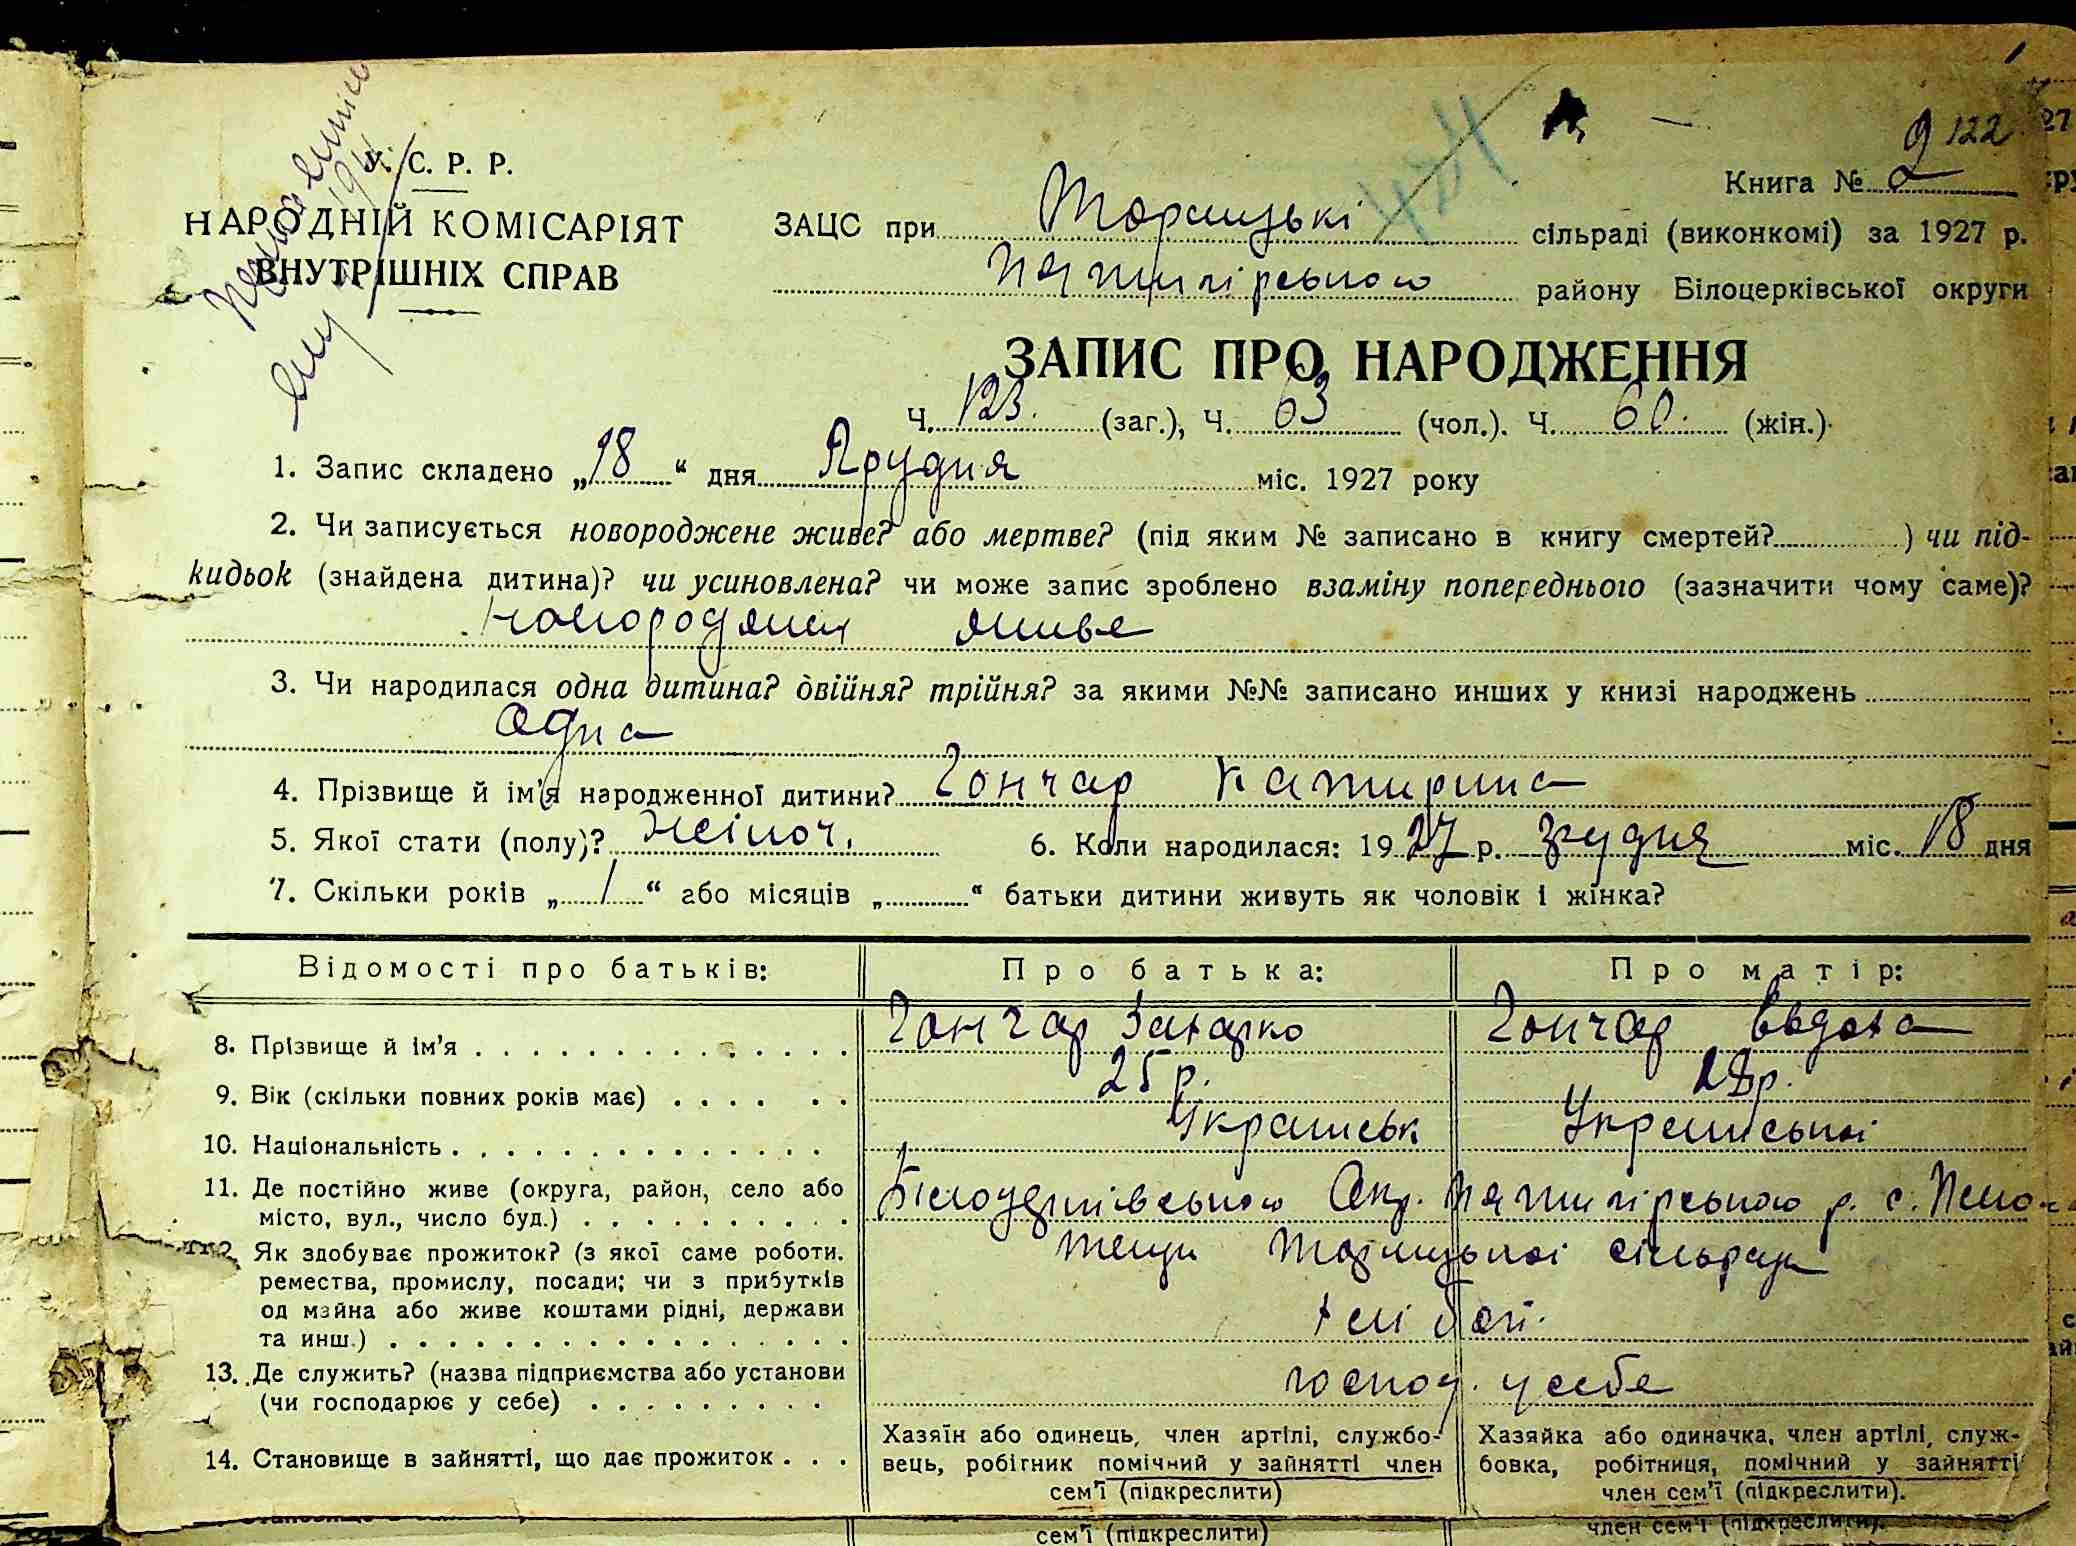 У. С. Р. Р.
НАРОДНІЙ КОМІСАРІЯТ
ВНУТРІШНІХ СПРАВ
122
Книга № 2
ЗАЦС при Торчицькі сільраді (виконкомі) за 1927 р.
Пятигірського району Білоцерківської округи
ЗАПИС ПРО НАРОДЖЕННЯ
Ч. 123. (заг.), Ч. 63 (чол.). Ч. 60. (жін.).
1. Запис складено „18“ дня Грудня міс. 1927 року
2. Чи записується новороджене живе? або мертве? (під яким № записано в книгу смертей? ) чи під-
кидьок (знайдена дитина)? чи усиновлена? чи може запис зроблено взаміну попереднього (зазначити чому саме)?
живе
3. Чи народилася одна дитина? двійня? трійня? за якими №№ записано инших у книзі народжень
одна
4. Прізвище й ім'я народженної дитини? Гончар Катирина
5. Якої стати (полу)? жіноч. 6. Коли народилася: 1927 р. грудня міс. 18 дня
7. Скільки років „1“ або місяців „ “ батьки дитини живуть як чоловік і жінка?
Відомості про батьків: Про батька: Про матір:
8. Прізвище й ім'я Гончар Захарко Гончар Евдоха
9. Вік (скільки повних років має) 25 р. 28 р.
10. Національність Українськ Українські
11. Де постійно живе (округа, район, село або Білоцерківського Окр. Пятигірського р. с.
місто, вул., число буд.)
12. Як здобуває прожиток? (з якої саме роботи. Торчицької сільради
ремества, промислу, посади; чи з прибутків
од майна або живе коштами рідні, держави хлібоп.
та инш.)
13. Де служить? (назва підприємства або установи господ. у себе
(чи господарює у себе)
14. Становище в зайнятті, що дає прожиток
Хазяїн або одинець, член артілі, службо-
вець, робігник помічний у зайнятті член
сем'ї (підкреслити)
Хазяйка або одиначка, член артілі, служ-
бовка, робітниця, помічний у зайнятті
член сем'ї (підкреслити).
сем'ї (підкреслити)
член сем'ї (підкреслити).